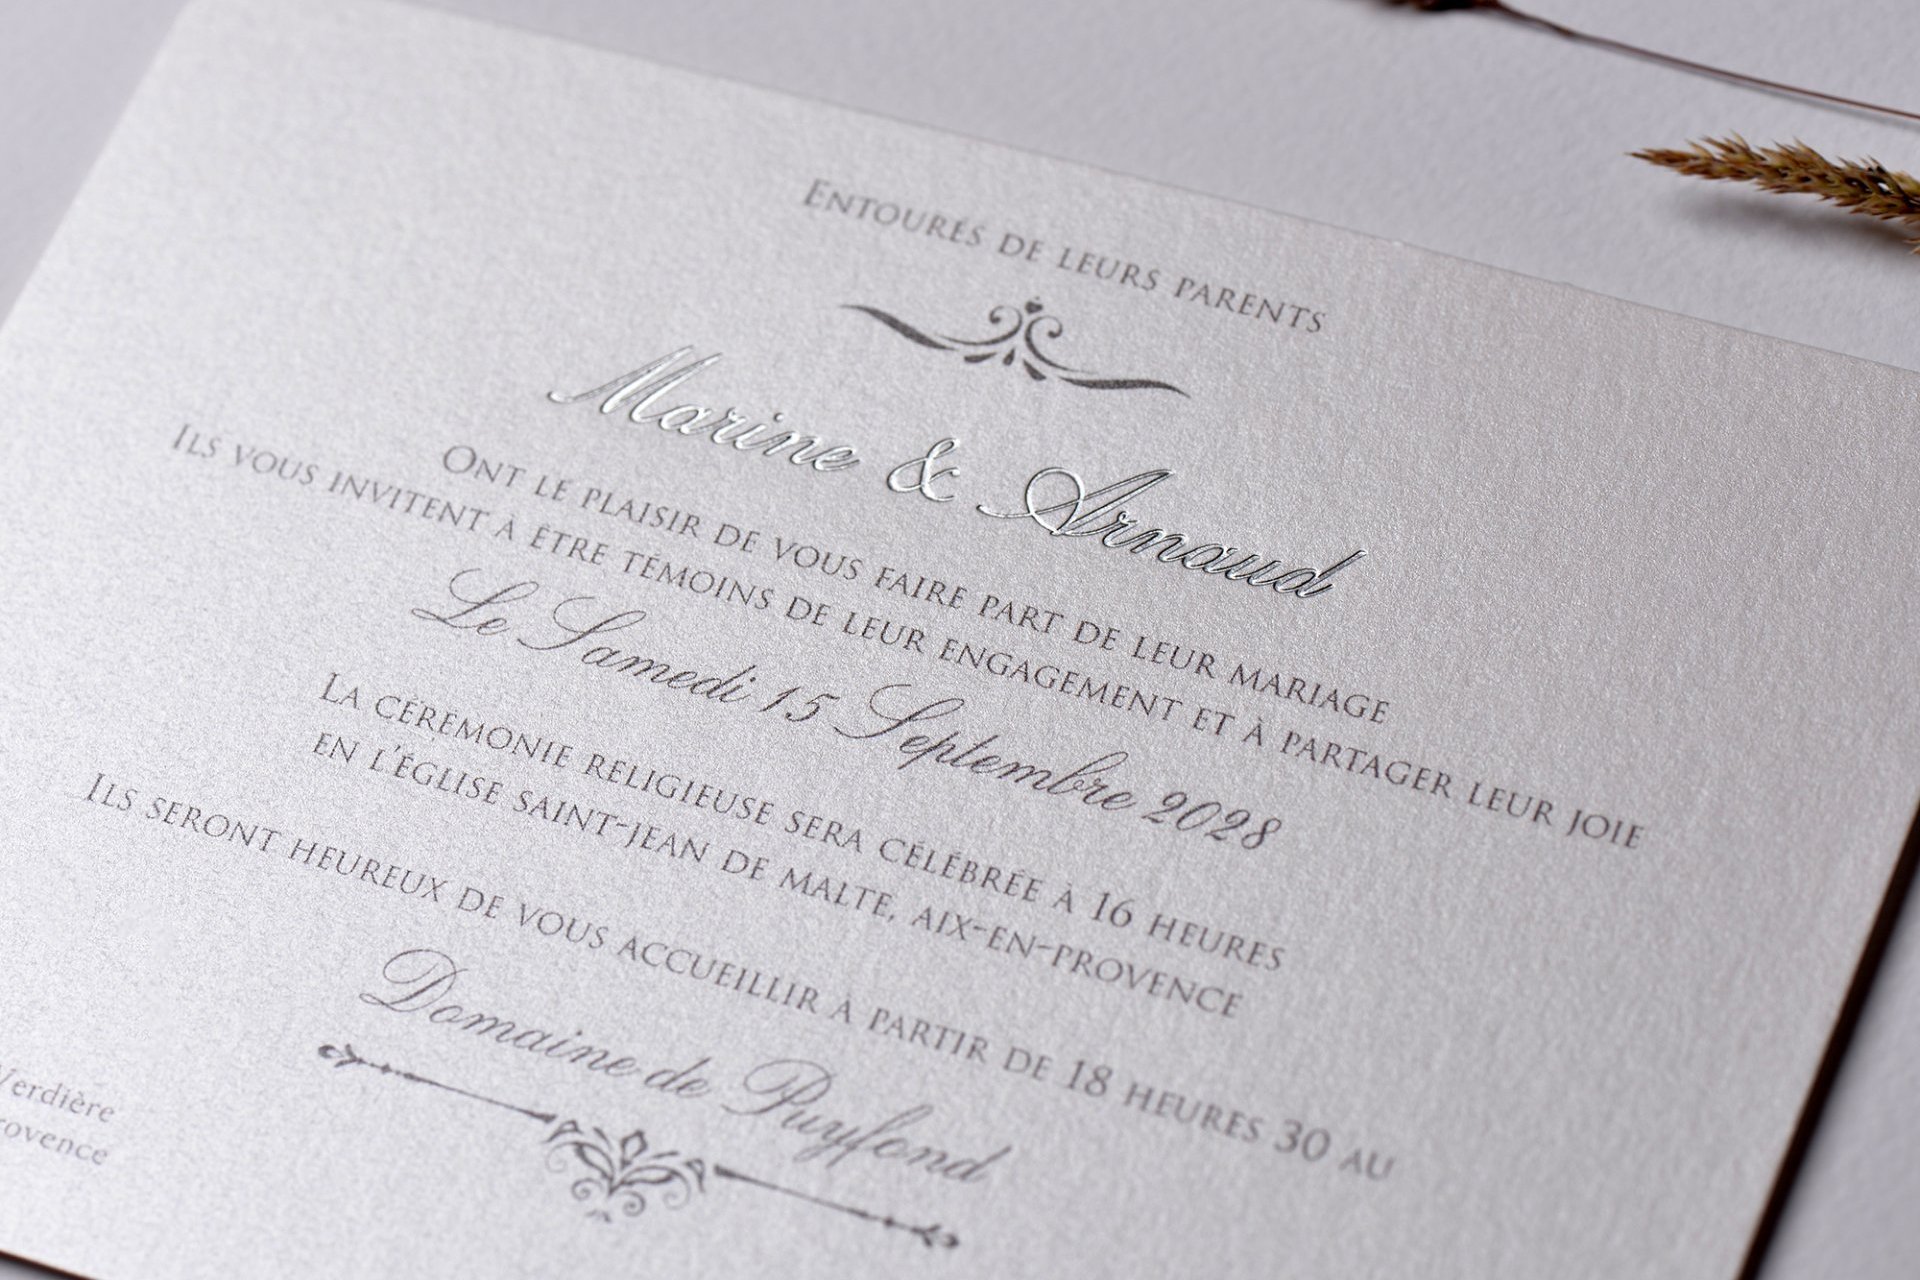 Entourés de leurs parents
Marine & Arnaud
Ont le plaisir de vous faire part de leur mariage
Ils vous invitent à être témoins de leur engagement et à partager leur joie
Le Samedi 15 Septembre 2028
La cérémonie religieuse sera célébrée à 16 heures
en l'église Saint-Jean de Malte, Aix-en-Provence
Ils seront heureux de vous accueillir à partir de 18 heures 30 au
Domaine de Puyfond
Verdière
rovence